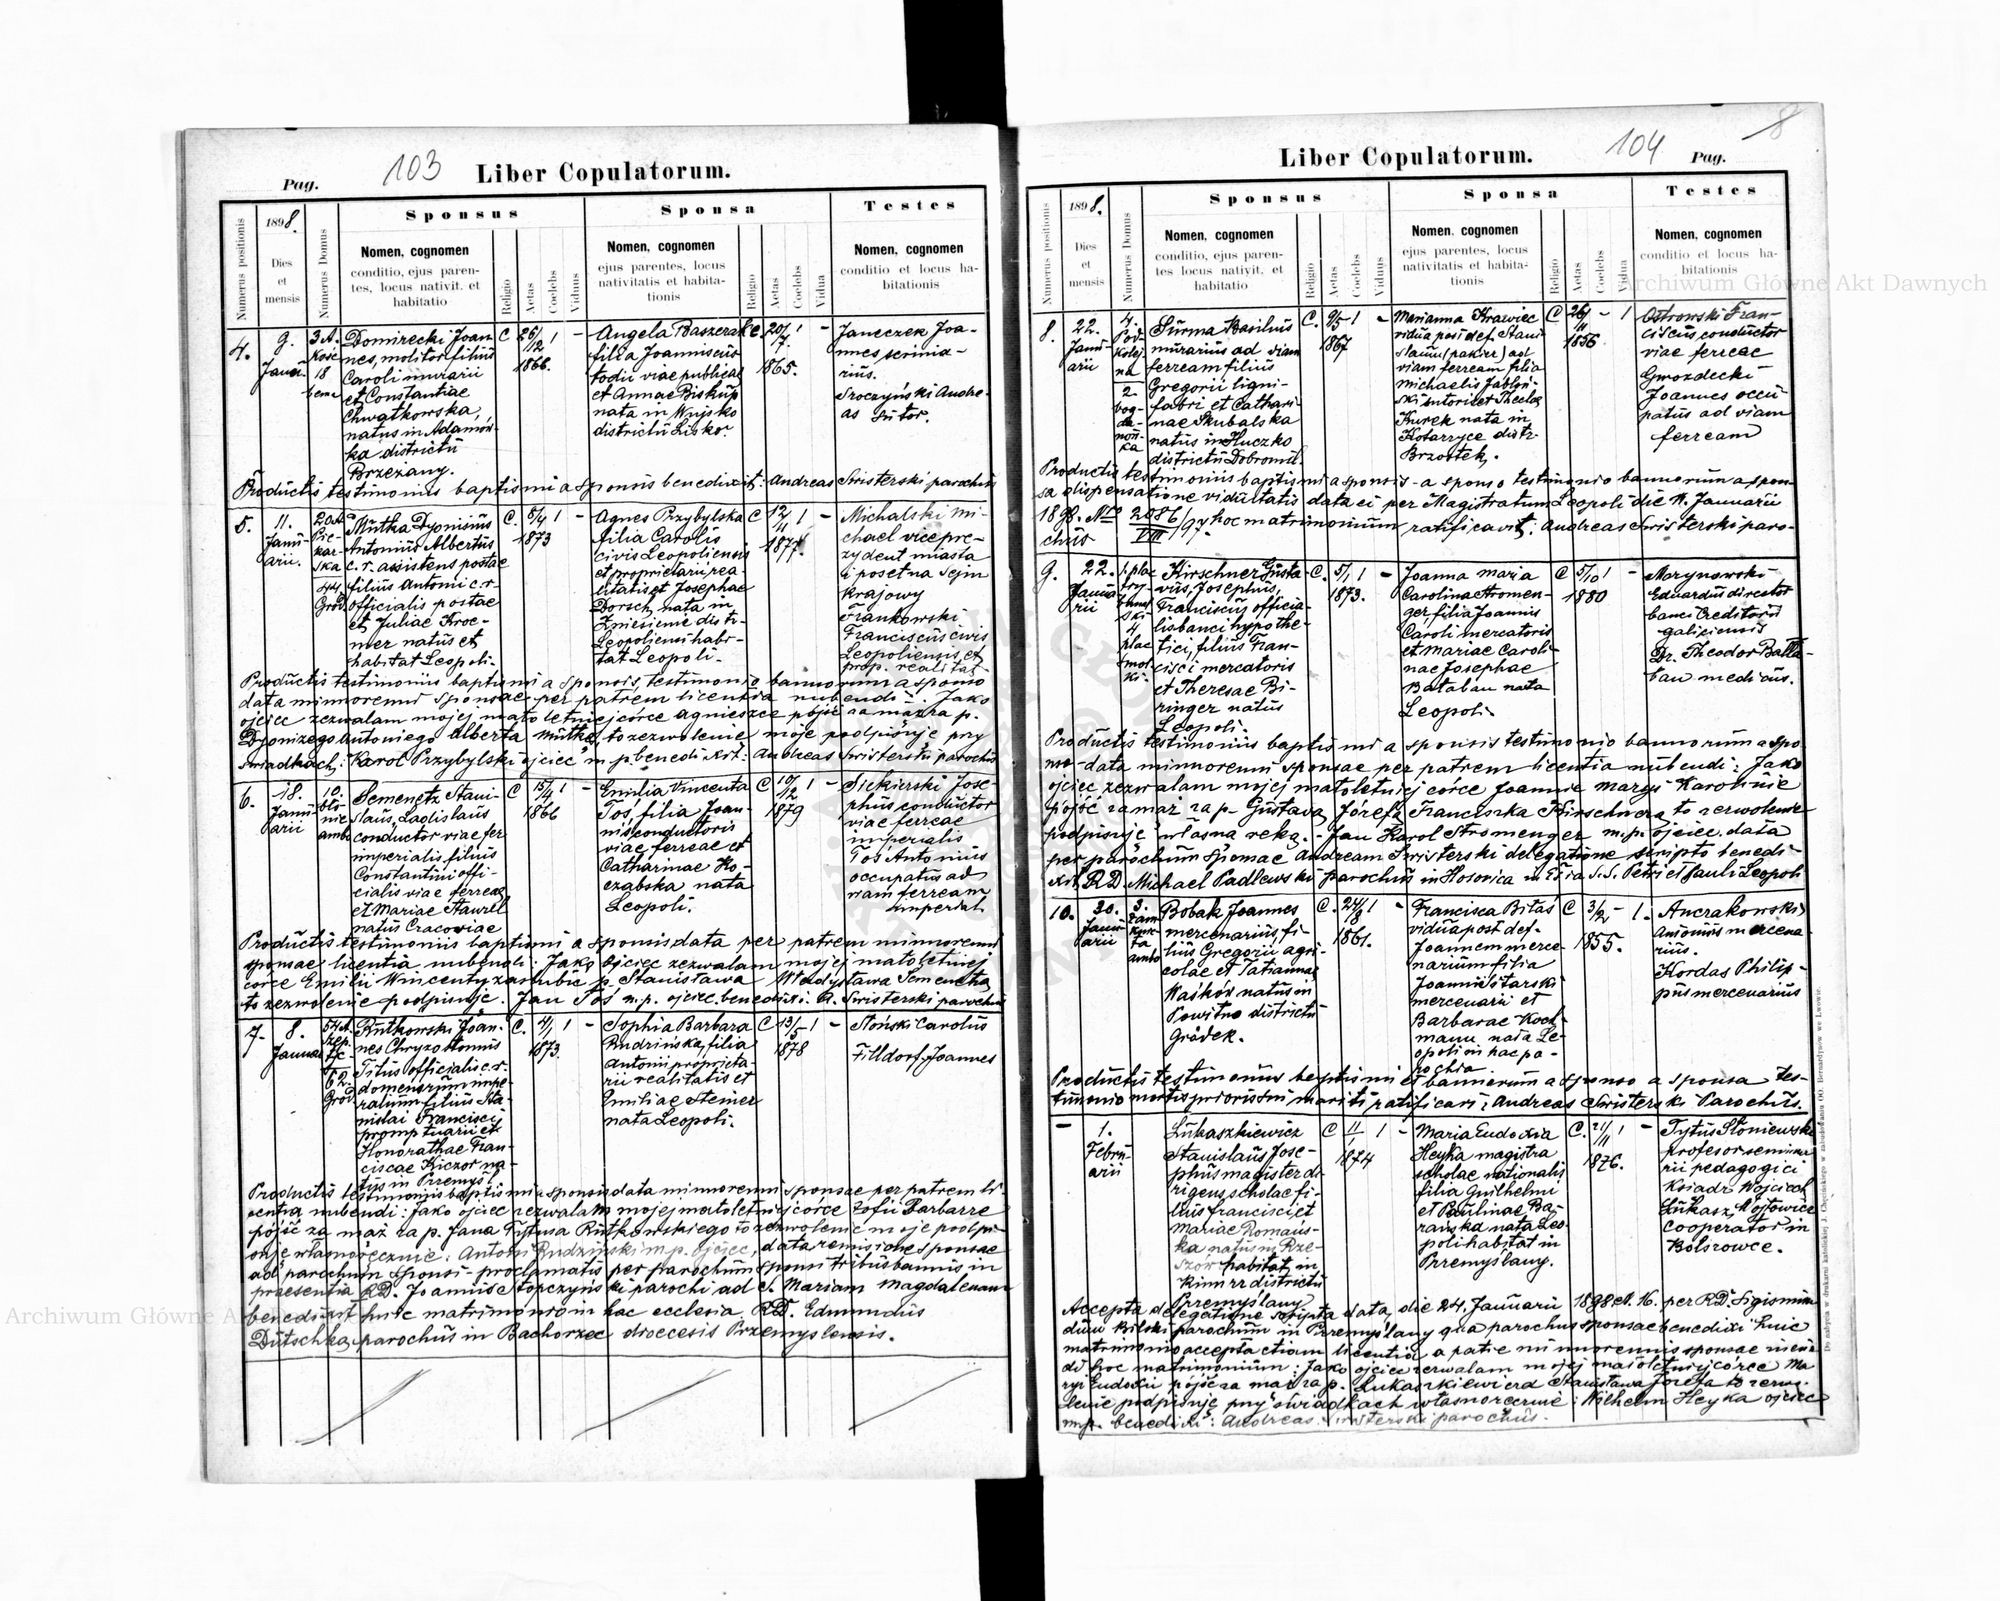 103
Liber Copulatorum.
Pag.
1898.
Sponsus
Sponsa
Testes
Numerus positionis
Dies et mensis
Numerus Domus
Nomen, cognomen
conditio, ejus paren-
tes, locus nativit. et
habitatio
Religio
Aetas
Coelebs
Viduus
Nomen, cognomen
ejus parentes, locus
nativitatis et habita-
tionis
Religio
Aetas
Coelebs
Vidua
Nomen, cognomen
conditio et locus ha-
bitationis
4.
9.
Januar.
3 A.
18
Domirecki Joan-
nes, molitor filius
Caroli murarii
et Constantiae
Chwatkowska,
natus in Adamow-
ka districtu
Brzeżany.
C
26/12
1866.
1
-
Angela Baszerak
filia Joannis cus
todii viae publicae
et Annae Biskup
nata in Wujsko
districtu Lisko.
C.
20/7.
1865.
1
-
Janeczek Joa-
nnes scrinia-
rius.
Sroczyński Andre-
as sutor.
Productis testimoniis baptismi a sponsis benedixit: Andreas Swisterski parochus
5.
11.
Janu-
arii.
Pie-
kar-
ska
44
Grod.
Mutka Dyonisius
Antonius Albertus
c. r. assistens postae
filius Antonii c. r.
officialis postae
et Juliae Kroe-
mer natus et
habitat Leopoli.
C.
5/4
1873
1
-
Agnes Przybylska
filia Carolis
civis Leopoliensis
et proprietarii rea-
litatis et Josephae
Dorsch, nata in
Zniesienie distr.
Leopoliensi habi-
tat Leopoli.
C
12/11
1877.
1
-
Michalski Mi-
chael vicepre-
zydent miasta
i poset na Sejm
krajowy
Frankowski
Franciscus civis
Leopoliensis et
prop. realitat.
Productis testimoniis baptismi a sponsis, testimonio bannorum a sponso
data minorenni sponsae per patrem licentia nubendi Jako
ojciec zezwalam mojej małoletniej córce Agnieszce pójść za mąż za p.
Dyonizego Antoniego Alberta Mutkę, to zezwolenie moje podpisuję przy
świadkach: Karol Przybylski ojciec m. p. benedixit: Andreas Swisterski parochus
6.
18.
Janu-
arii
10.
bło-
nie
ambo
Semenetz Stani-
slaus, Ladislaus
conductor viae fer
imperialis filius
Constantini offi-
cialis viae ferreae
et Mariae Hawrel
natus Cracoviae
C
15/4
1866
1
-
Emilia Vincenta
Toś, filia Joan-
nis conductoris
viae ferreae et
Catharinae Ko-
zabska nata
Leopoli.
C
10/12
1879
1
-
Siekierski Jose-
phus conductor
viae ferreae
imperialis
Toś Antonius
occupatus ad
viam ferream
imperial.
Productis testimoniis baptismi a sponsis data per patrem minorenni
sponsae licentia nubendi: Jako ojciec zezwalam mojej małoletniej
córce Emilii Wincenty zaślubić p. Stanisława Władysława Semenetza
to zezwolenie podpisuję. Jan Toś m. p. ojciec benedixi. A. Swisterski parochus
7.
8.
Januar
62
Grod.
Rutkowski Joan-
nes Chryzostomus
Titus officialis c. r.
domenarum impe-
ralium filius Sta-
nislai Francisci
promptuarii et
Honorathae Fran-
ciscae Kiczor na-
tus in Przemyśl
C.
4/1
1873.
1
-
Sophia Barbara
Rudzińska, filia
Antonii proprieta-
rii realitatis et
Emiliae Steiner
nata Leopoli.
C
13/5
1878
1
-
Słoński Carolus
Filldorf Joannes
Productis testimoniis baptismi a sponsis data minorenni sponsae per patrem li-
centia nubendi: Jako ojciec zezwalam mojej małoletniej córce Zofii Barbarze
pójść za mąż za p. Jana Tytusa Rutkowskiego to zezwolenie moje podpi-
suję własnoręcznie: Antoni Rudziński m. p. ojciec, data remissione sponsae
ad parochum sponsi - proclamatis per parochum sponsi tribus bannis in
praesentia RD. Joannis Stopczyński parochi ad S. Mariam Magdalenam
benedixit huic matrimonio in hac ecclesia RD. Edmundus
Dutschka, parochus in Bachorzec dioecesis Przemyslensis.
104
8
Liber Copulatorum.
Pag.
1898.
Sponsus
Sponsa
Testes
Numerus positionis
Dies et mensis
Numerus Domus
Nomen, cognomen
conditio, ejus paren-
tes locus nativit. et
habitatio
Religio
Aetas
Coelebs
Viduus
Nomen, cognomen
ejus parentes, locus
nativitatis et habita-
tionis
Religio
Aetas
Coelebs
Vidua
Nomen, cognomen
conditio et locus ha-
bitationis
8.
22.
Janu-
arii
4.
Pod-
kolej-
na
2
bog-
da-
nów-
ka
Surma Basilius
murarius ad viam
ferream filius
Gregorii ligni-
fabri et Cathari-
nae Skubalska
natus in Huczko
districtu Dobromil.
C.
9/5
1867
1
-
Marianna Krawiec
vidua post def. Stani-
slaum (pakier) ad
viam ferream filia
Michaelis Jabłoń-
ski sutoris et Theclae
Kurek nata in
Kotarzyce distr.
Brzostek.
C
26/11
1856.
-
1
Ostrowski Fran-
ciscus, conductor
viae ferreae
Gwozdecki
Joannes occu-
patus ad viam
ferream
Productis testimoniis baptismi a sponsis - a sponso testimonio bannorum a spon-
sa dispensatione viduitatis data ei per Magistratum Leopoli die 11. Januarii
1898. Nro 2086/VIII/97. hoc matrimonium ratificavit: Andreas Swisterski paro-
chus
9.
22.
Janua-
rii
4
plac
smol-
ki.
Kirschner Gusta-
vus, Josephus,
Franciscus officia-
lis banci hypothe-
tici, filius Fran-
cisci mercatoris
et Theresae Bi-
ringer natus
Leopoli.
C.
5/1
1873.
1
-
Joanna Maria
Carolina Stromen-
ger, filia Joannis
Caroli mercatoris
et Mariae Caroli-
nae Josephae
Bataban nata
Leopoli.
C
5/10
1880
1
-
Marynowski
Eduardus director
banci Creditorii
galiciensis
Dr. Theodor Balla-
ban medicus.
Productis testimoniis baptismi a sponsis testimonio bannorum a spo-
nso - data minorenni sponsae per patrem licentia nubendi: Jako
ojciec zezwalam mojej małoletniej córce Joannie Maryi Karolinie
pójść za mąż za p. Gustava Józefa Franciszka Kirschnera to zezwolenie
podpisuję własną ręką. - Jan Karol Stromenger m. p. ojciec. data
per parochum sponsae Andream Swisterski delegatione scripto benedi-
xit RD. Michael Padlewski parochus in Hosovica in Ecclesia S.S. Petri et Pauli Leopoli
10.
30.
Janu-
arii
3.
ambo
Bobak Joannes
mercenarius, fi-
lius Gregorii agri-
colae et Tatiannae
Waśków natus in
Powitno districtu
Gródek.
C.
24/8
1861.
1
-
Francisca Bitas
vidua post def.
Joannem merce-
narium filia
Joannis Starski
mercenarii et
Barbarae Koch-
mann, nata Le-
opoli in hac pa-
rochia
C
3/2
1855.
-
1.
Ancrakowski
Antonius mercena-
rius.
Kordas Philip-
pus mercenarius
Productis testimoniis baptismi et bannorum a sponso a sponsa tes-
timonio mortis prioris sui mariti ratificavi: Andreas Swisterski Parochus.
-
1.
Febru-
arii
Łukaszkiewicz
Stanislaus Jose-
phus magister di-
rigens scholae fi-
lius Francisci et
Mariae Romans-
ka natus in Rze-
szow habitat in
Kimirz districtu
Przemyślany
C
11/1
1874
1
-
Maria Eudoxia
Heyka magistra
scholae nationalis
filia Guilhelmi
et Paulinae Ba-
rańska nata Leo-
poli habitat in
Przemyślany.
C.
21/11
1876.
1
-
Tytus Słoniewski
profesor semina-
rii pedagogici
Ksiądz Wojciech
Łukasz Wójtowicz
cooperator in
Bolszowce.
Accepta delegatione scripta data, die 24. Januarii 1898 N. 16. per RD. Sigismun-
dum Bilski parochum in Przemyślany qua parochus sponsae benedixi huic
matrimonio accepta etiam licentia a patre minorennis sponsae ineun-
di hoc matrimonium: Jako ojciec zezwalam mojej małoletniej córce Ma-
ryi Eudoxii pójść za mąż za p. Łukaszkiewicza Stanisława Józefa to zezwo-
lenie podpisuję przy świadkach własnoręcznie: Wilhelm Heyka ojciec
mp. benedixi: Andreas Swisterski parochus.
Do nabycia w drukarni katolickiej J. Chęcińskiego w zabudowaniu OO. Bernardynów we Lwowie.
Archiwum Główne Akt Dawnych
Archiwum Główne Akt Dawnych